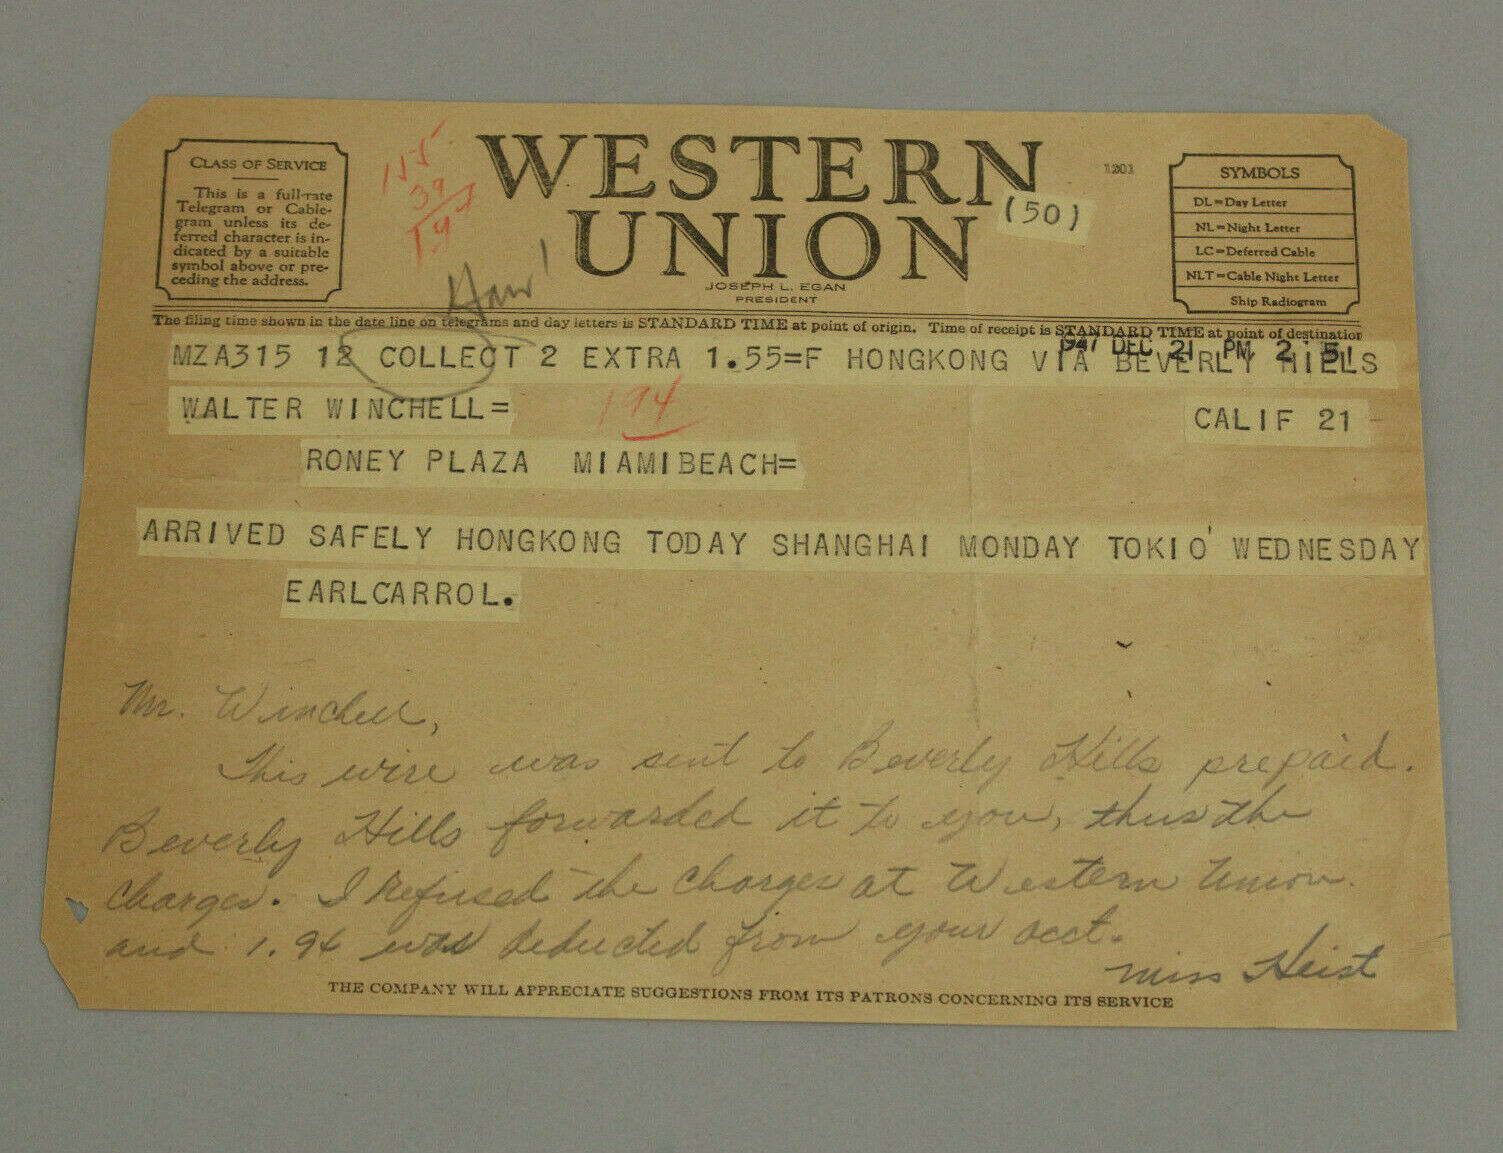 CLASS OF SERVICE
This is a full-rate
Telegram or Cable-
gram unless its de-
ferred character is in-
dicated by a suitable
symbol above or pre-
ceding the address.
155
39
194
WESTERN
UNION
(50)
JOSEPH L. EGAN
PRESIDENT
1201
SYMBOLS
DL=Day Letter
NL=Night Letter
LC=Deferred Cable
NLT=Cable Night Letter
Ship Radiogram
The filing time shown in the date line on telegrams and day letters is STANDARD TIME at point of origin. Time of receipt is STANDARD TIME at point of destination
1947 DEC 21 PM 2 51
MZA315 12 COLLECT 2 EXTRA 1.55=F HONGKONG VIA BEVERLY HILLS
WALTER WINCHELL=
194
CALIF 21
RONEY PLAZA MIAMIBEACH=
ARRIVED SAFELY HONGKONG TODAY SHANGHAI MONDAY TOKIO' WEDNESDAY
EARLCARROL.
Mr. Winchell,
This wire was sent to Beverly Hills prepaid.
Beverly Hills forwarded it to you, thus the
charges. I refused the charges at Western Union
and 1.94 was deducted from your acct.
Miss Heist
THE COMPANY WILL APPRECIATE SUGGESTIONS FROM ITS PATRONS CONCERNING ITS SERVICE